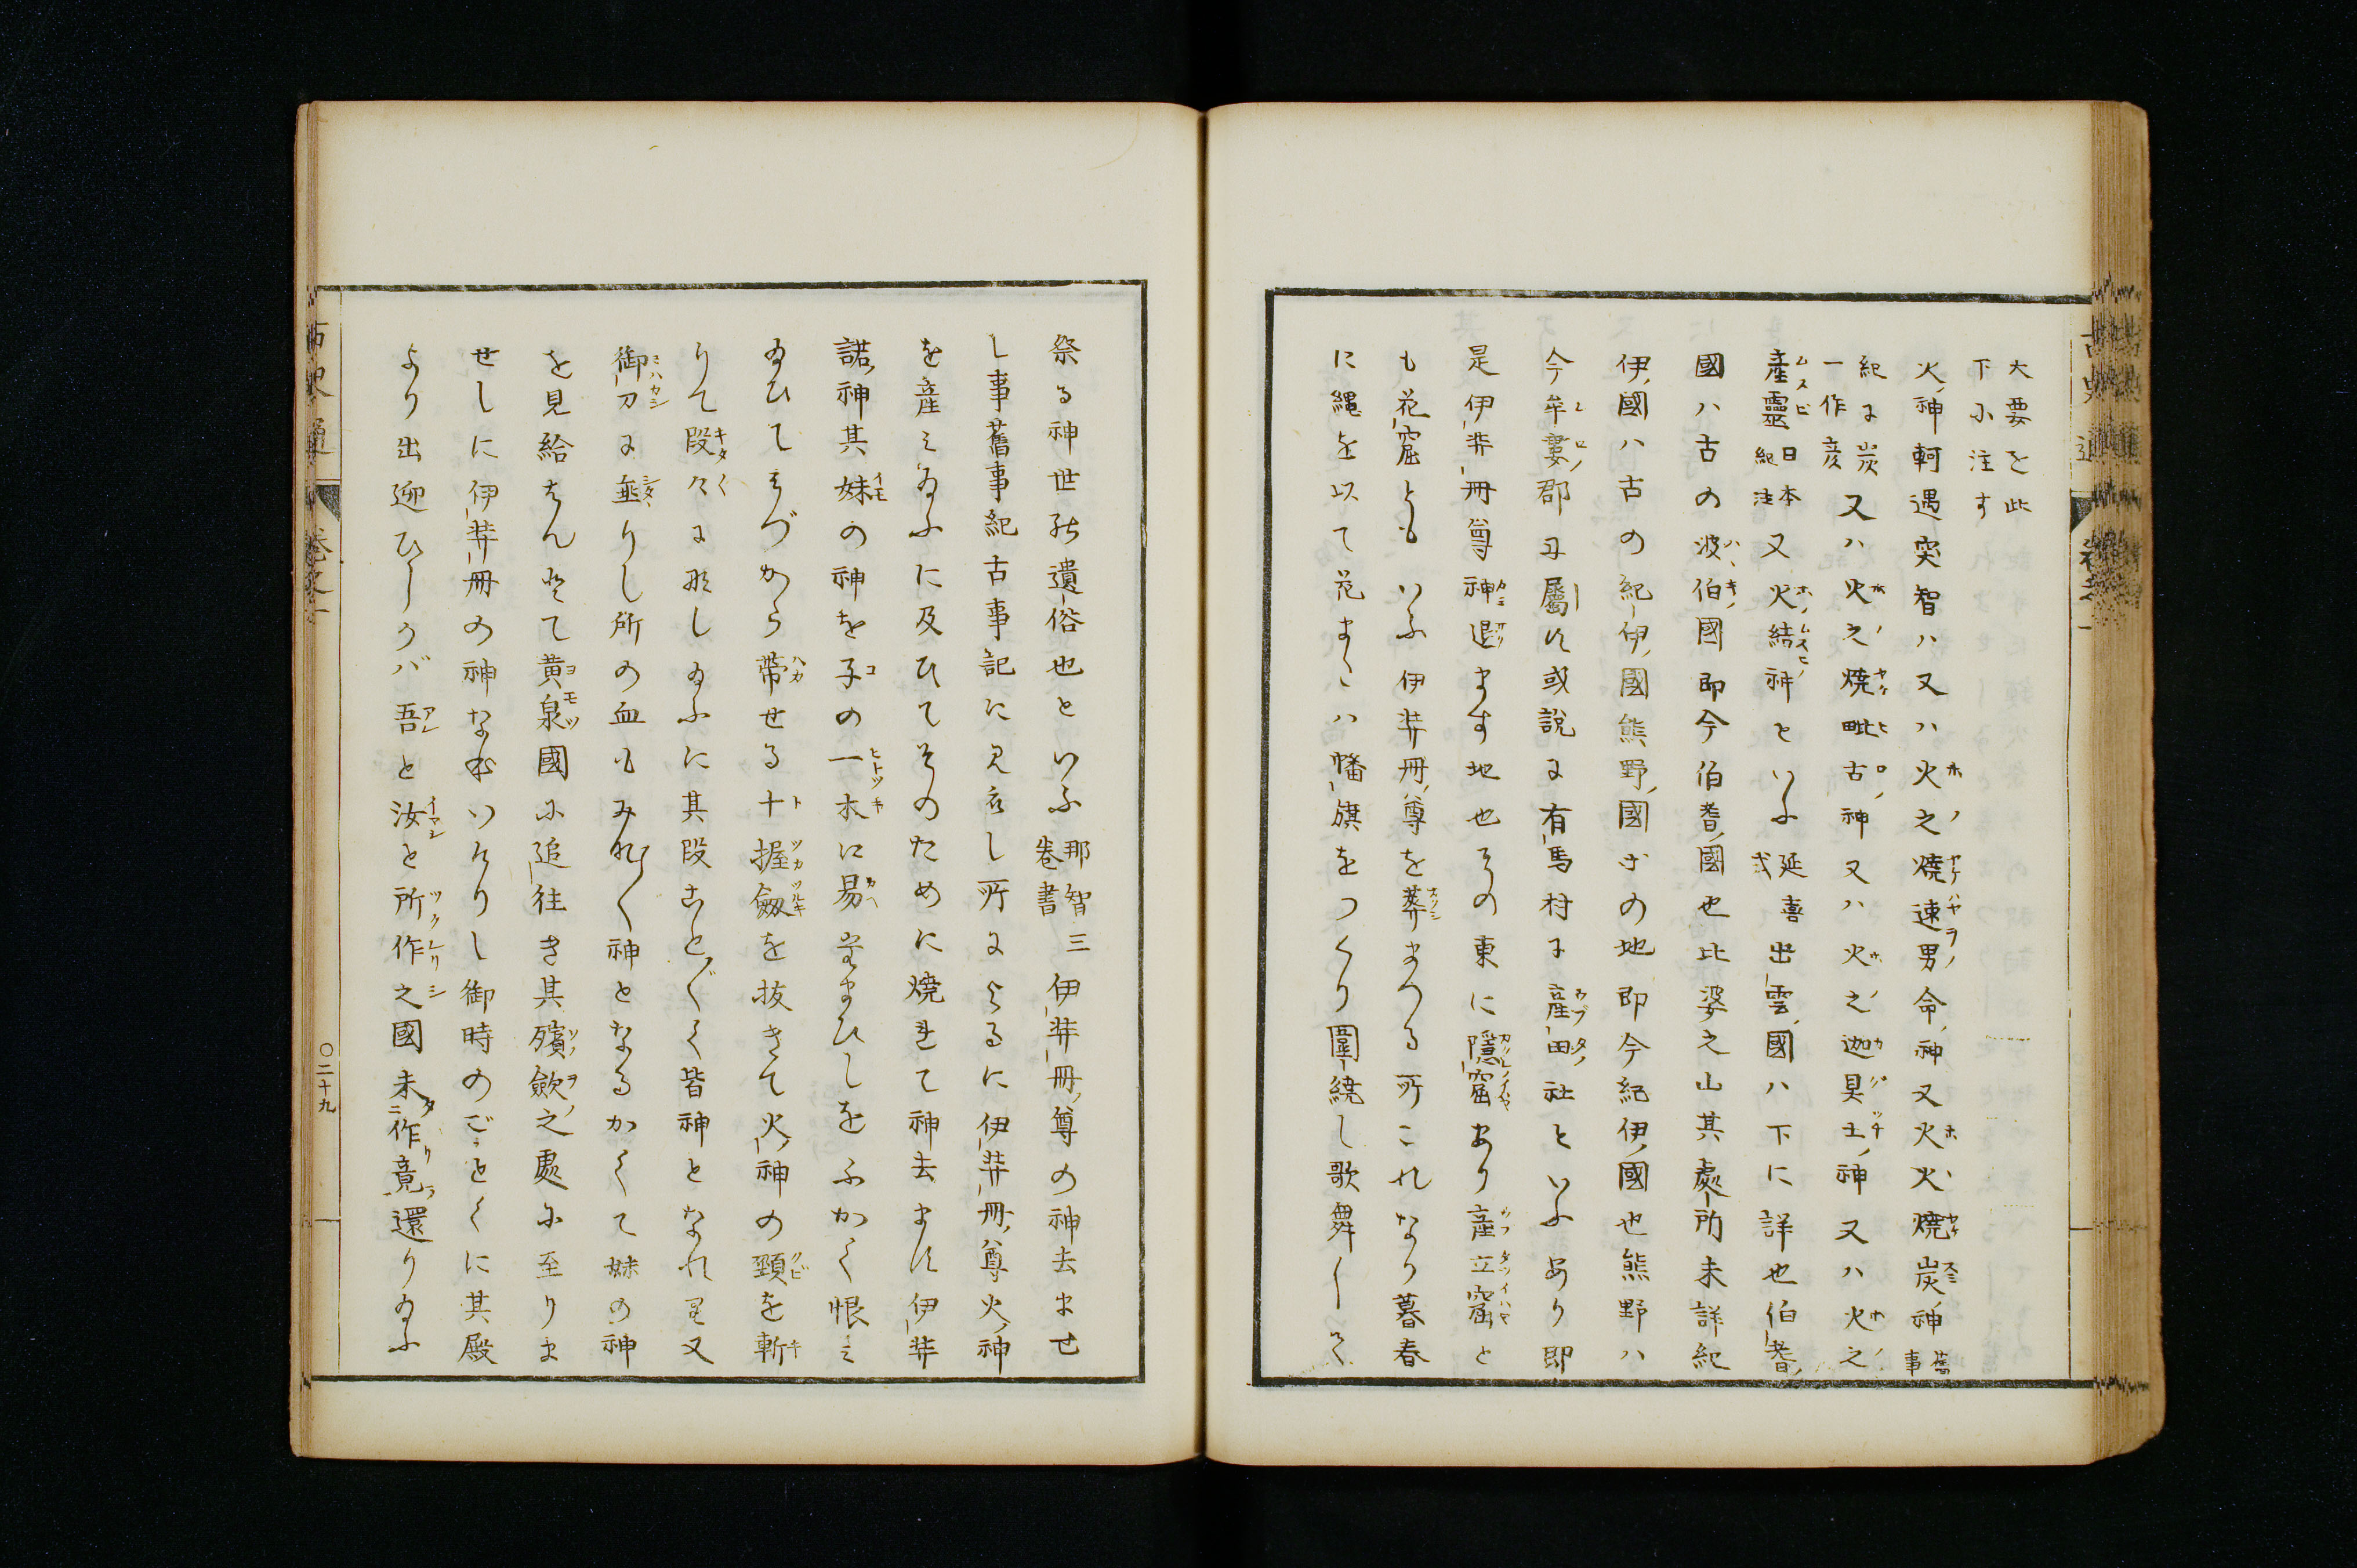 大要を此
下に注す
火神軻遇突智ハ又ハ火之焼速男命神又火火焼炭神舊事
紀に炭一作彦又ハ火之焼毗古神又ハ火之迦具土神又ハ火之
産靈日本紀注又火結神といふ延喜式出雲國ハ下に詳也伯耆
國ハ古の波伯國即今伯耆國也比婆之山其處所未詳紀
伊國ハ古の紀伊國熊野國等の地即今紀伊國也熊野ハ
今牟婁郡に屬す或説に有馬村に産田社といふあり即
是伊弉冊尊神退ます地也その東に隱窟あり産立窟と
も花窟ともいふ伊弉冊尊を葬まつる所これなり暮春
に縄を以て花または幡旗をつくり圍繞し歌舞して
祭る神世の遺俗也といふ那智三巻書伊弉冊尊の神去ませ
し事舊事紀古事記に見えし所によるに伊弉冊尊火神
を産み給ふに及ひてそのために焼れて神去ます伊弉
諾神其妹の神を子の一木に易つまひしをふかく恨み
給ひてみづから帶せる十握劔を抜きて火神の頸を斬
りて段々に形し給ふに其段ことごとく皆神となれり又
御刀に垂りし所の血もみな〳〵神となるかくて妹の神
を見給はんとて黄泉國に追往き其殯歛之處に至りま
せしに伊弉冊の神なおいけりし御時のごとくに其殿
より出迎ひしかバ吾と汝と所作之國未作竟還り給ふ
古史通
巻之一
〇二十九